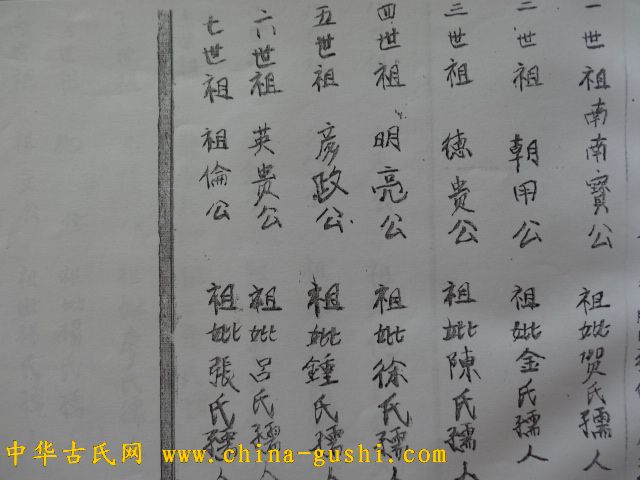 一世祖南南寳公 祖妣贺氏孺人
二世祖朝用公 祖妣金氏孺人
三世祖德贵公 祖妣陳氏孺人
四世祖明亮公 祖妣徐氏孺人
五世祖彦政公 祖妣鍾氏孺
六世祖英贵公 祖妣吕氏孺人
七世祖祖倫公 祖妣張氏孺人
中华古氏网 www.china-gushi.com